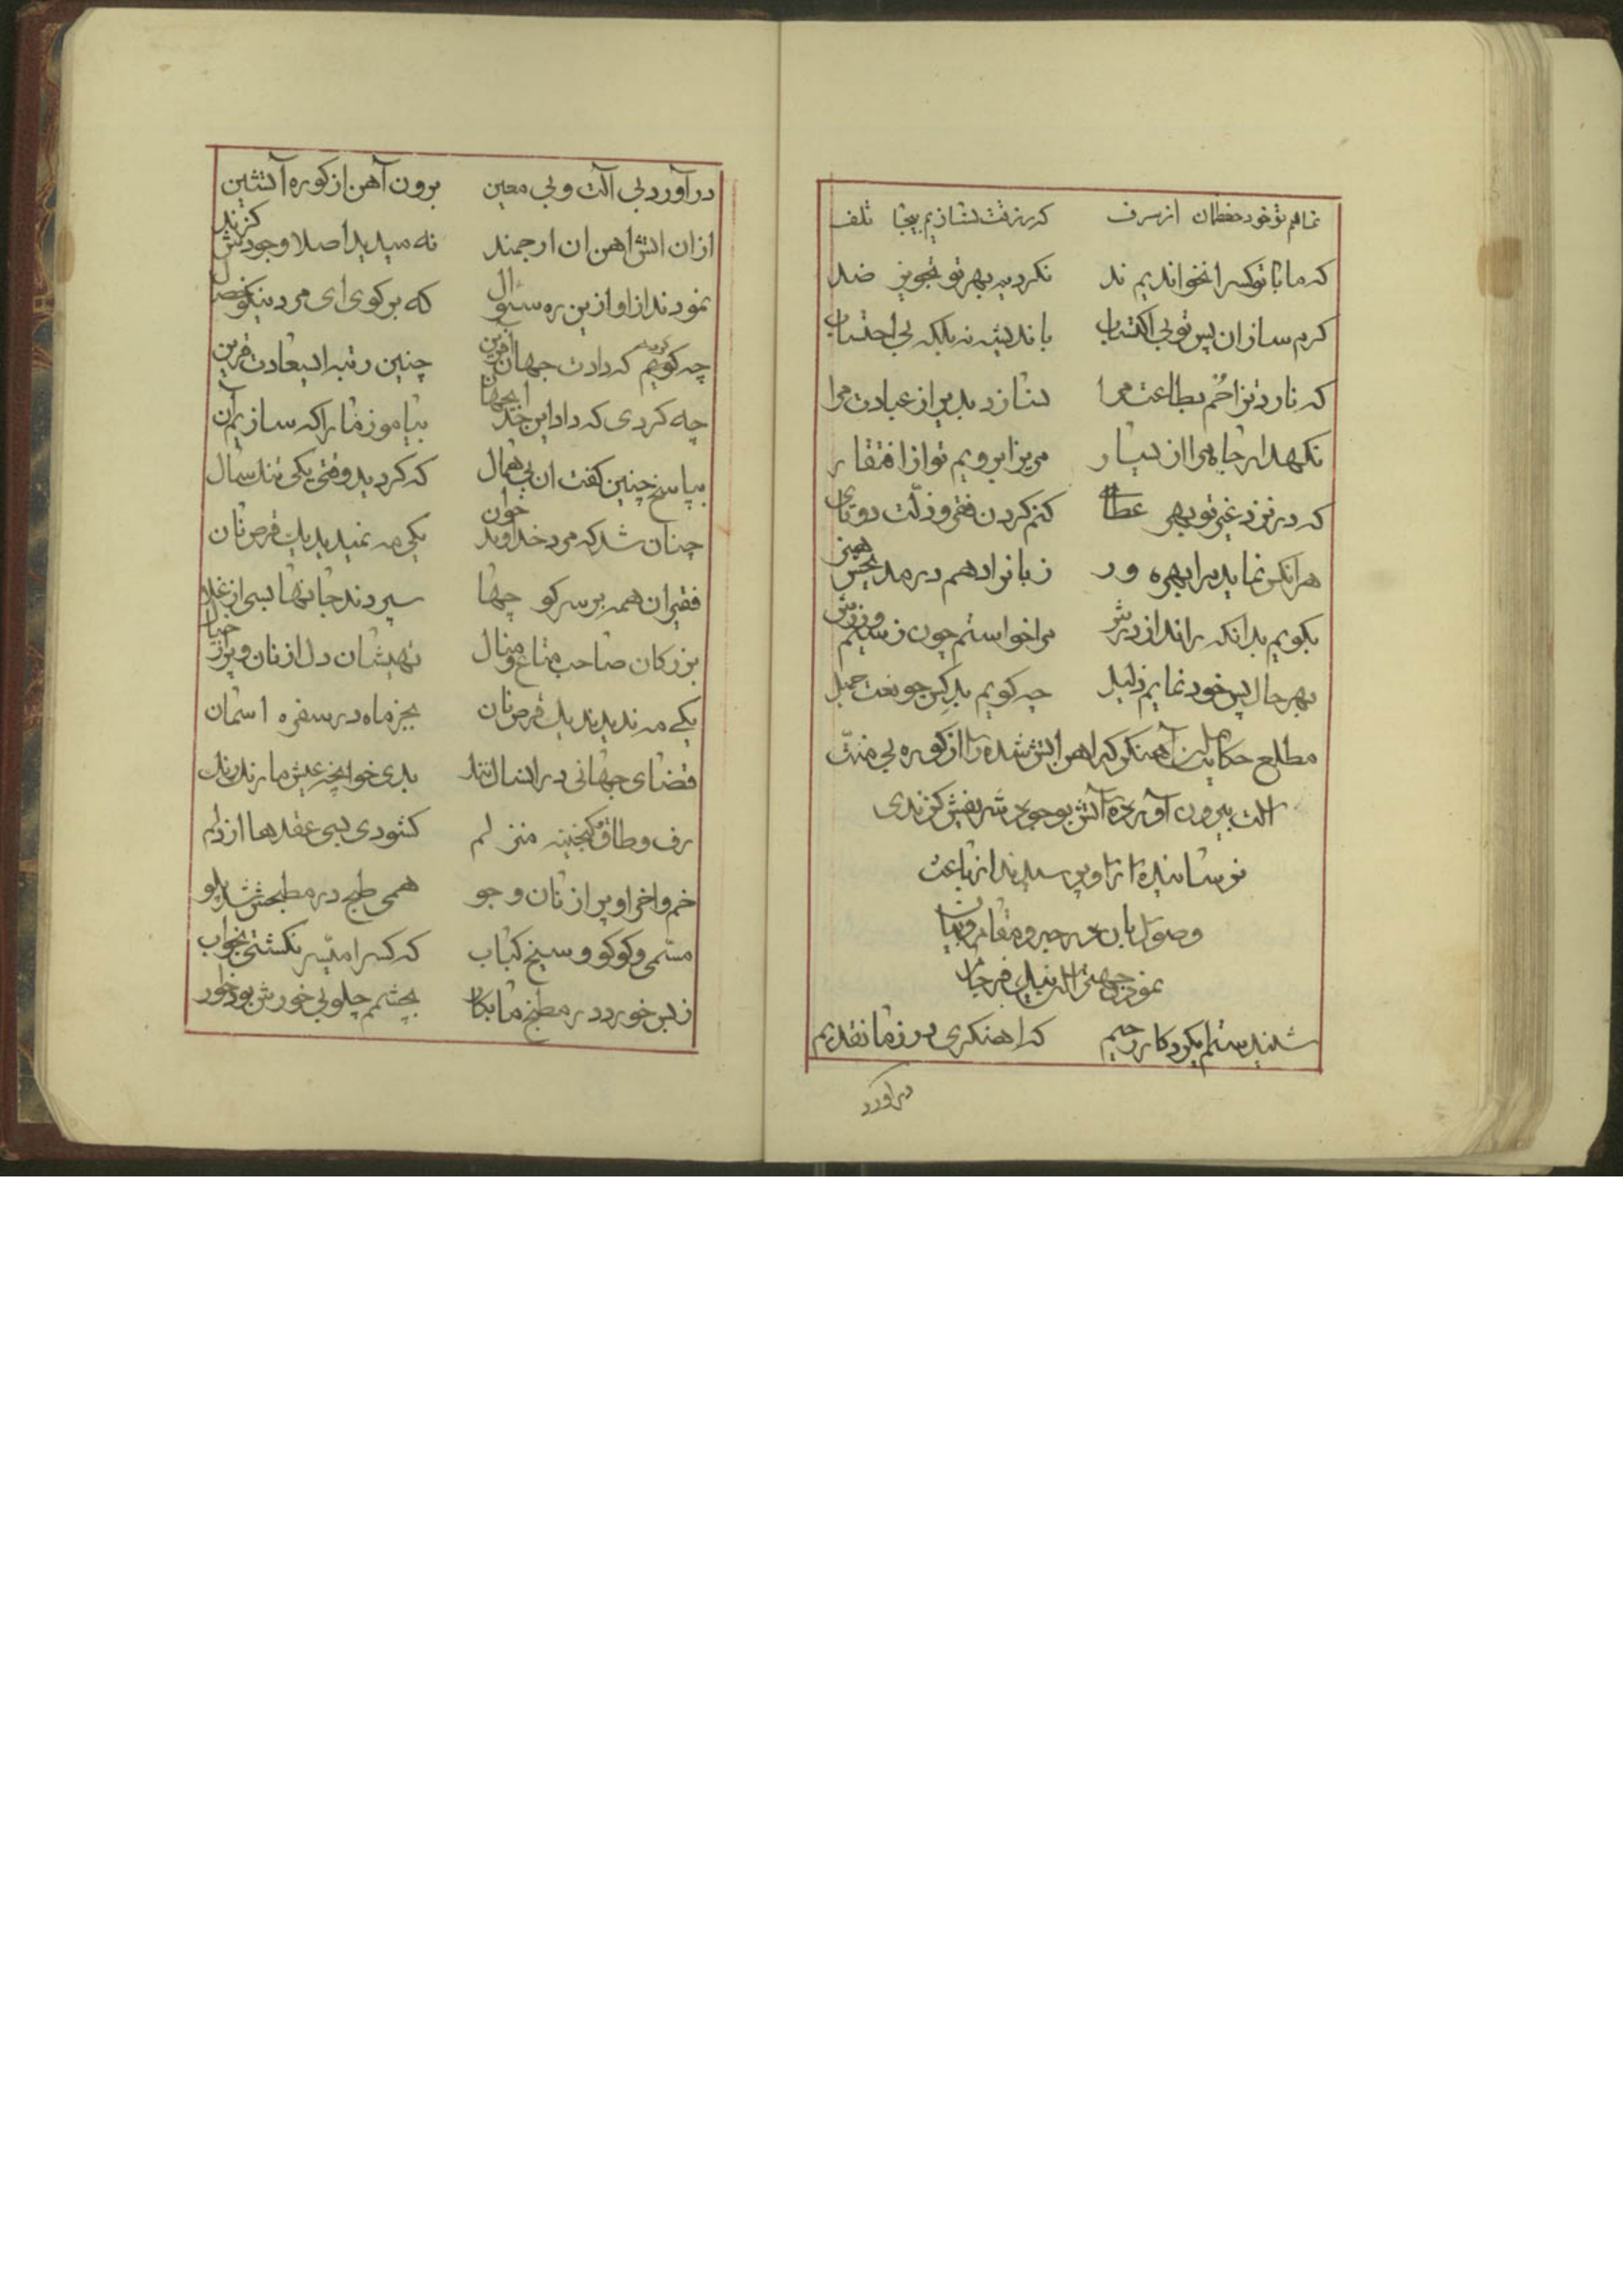 نماهم تو خود حفظمان از سرف که رزقت نسازیم بیجا تلف
که ما با تو کس را نخواندیم ند نکردیم بهر تو تجویز ضد
کرم ساز ان پس تو بی اکتساب باندیشه نه بلکه بی احتساب
که نارد ترا خم بطاعت مرا نسازد بدیر از عبادت مرا
نکهدار جاه مرا از یسار مریز ابرویم تو از افتقار
که در نزد غیر تو بهر عطا کنم کردن فقر و ذلت دو تا
هر انکس نماید مرا بهره ور زبانرا دهم در مدیحش
بکویم بد انکه راند از درش مرا خواستم چون ز سیم
بهر حال پس خود نمایم ذلیل چه کویم بد کس چو نعت جمیل
مطلع حکایت آهنکر که اهن اتش شده را از کوره بی منت
الت بیرون آورده آتش بوجود شریفش کزندی
نرسانیده از او پرسیدند از باعث
وصول بان درجه و مقام و بیان
نمودن جهت
شنیدستم بکردکار رحیم که اهنکری بود زما نقدیم
در آورد
در آورد بی آلت و بی معین برون آهن از کوره آتشین
از ان اتش اهن ان ارجمند نه میدید اصلا وجودش کزند
نمودند از او ازین ره سئوال که برکوی ای مرد نیکو خصال
چه کویم که دادت جهان آفرین چنین رتبه ای سعادت قرین
چه کردی که داد این خدا بیاموز ما را که سازیم آن
بپاسخ چنین کفت ان بی همال که کردید وقتی یکی تند سال
چنان شد که مرد خداوند خوان یکی مه نمیدید یک قرص نان
فقیران همه بر سر کوچها سپردند جانها بسی از غلا
بزرکان صاحب متاع و منال تهیشان دل از نان و پر از خیال
یکی مه ندیدند یک قرص نان بجز ماه در سفره اسمان
قضای جهانی در انسال تند بدی خوانچه عیش ما رند رند
رف و طاق کنجینه منزلم کشودی بسی عقدها از دلم
خم واخرا و پر از نان و جو همی طبخ در مطبخش شد پلو
مسمی و کوکو و سیخ کباب که کس را میسر نکشتی بخواب
ز بس خورد در مطبخ ما بکار بچشمم چلو بی خورش بود خوار